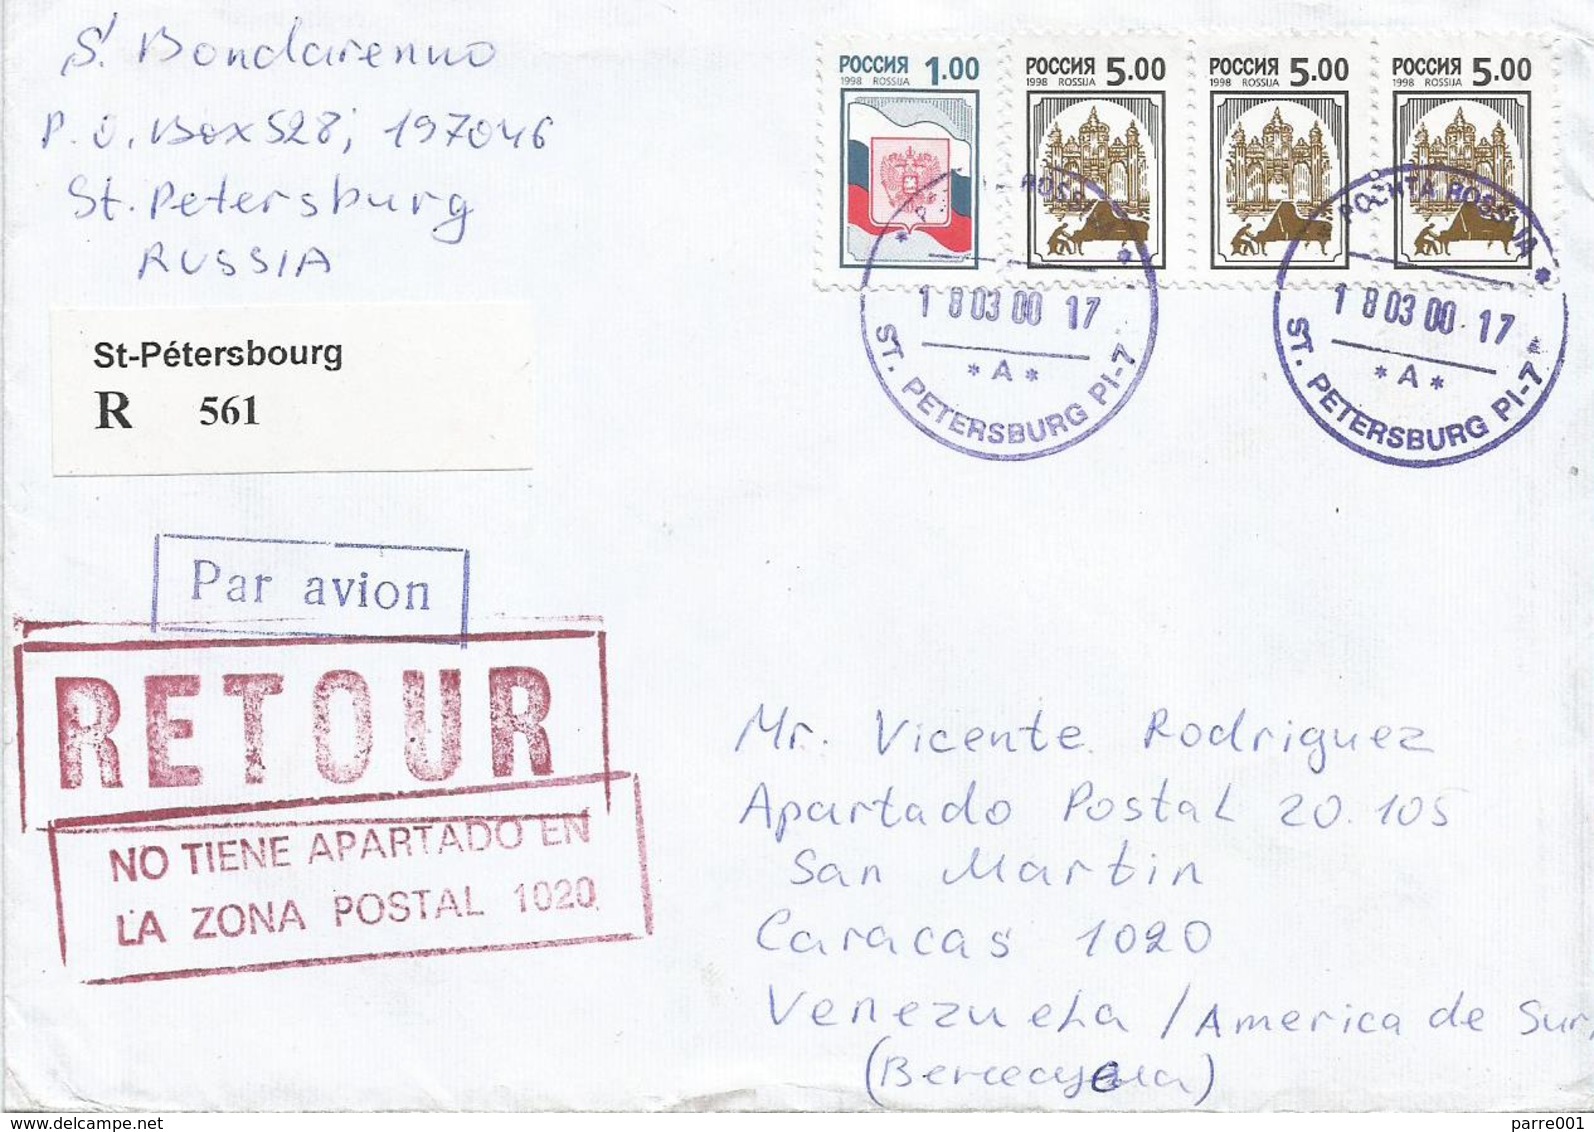 S. Bondarenno
P. O. Box 528; 197046
St. Petersburg
RUSSIA
РОССИЯ 1.00
1998 ROSSIJA
РОССИЯ 5.00
1998 ROSSIJA
РОССИЯ 5.00
1998 ROSSIJA
РОССИЯ 5.00
1998 ROSSIJA
18 03 00 17
* A *
ST. PETERSBURG PI-7
POCHTA ROSSIA
18 03 00 17
* A *
ST. PETERSBURG PI-7
St-Pétersbourg
R 561
Par avion
RETOUR
NO TIENE APARTADO EN
LA ZONA POSTAL 1020
Mr. Vicente Rodriguez
Apartado Postal 20.105
San Martin
Caracas 1020
Venezuela / America de Sur,
parre001